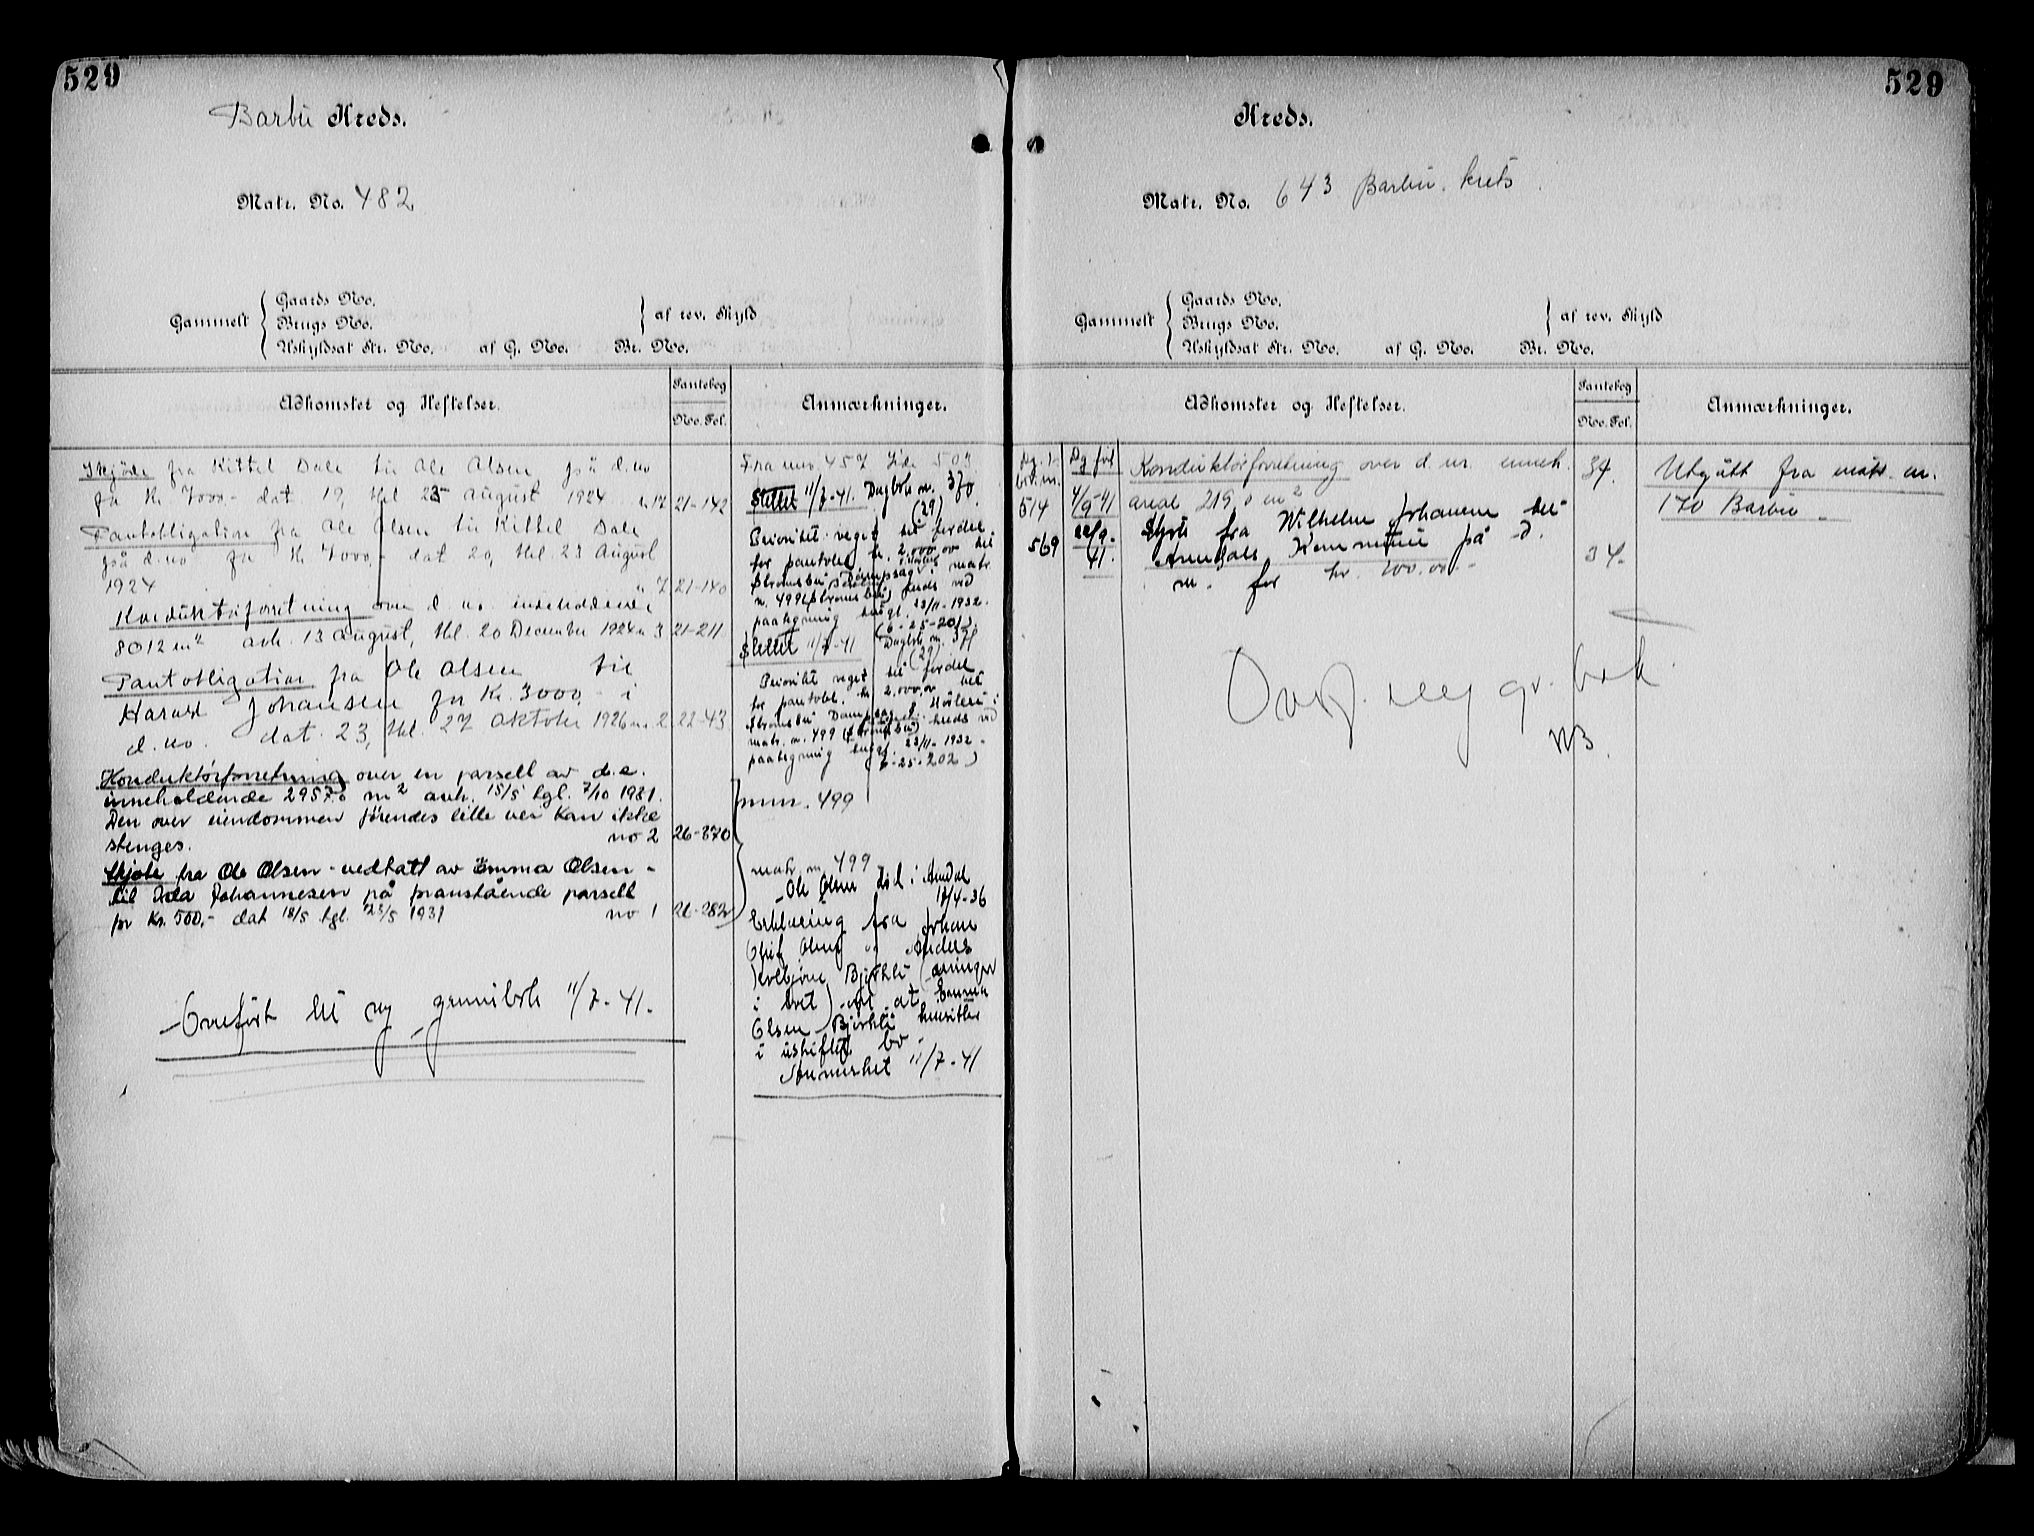 529
Barbu Kreds.
Matr. No. 482
Gammelt
Gaards No.
Brugs No.
Uskyldsat Str. No. af G. No. Br. No.
af rev. Skyld
Adkomster og Heftelser.
Pantebog
No. Fol.
Anmærkninger.
Skjøde fra Kittel Dale til Ole Olsen på d. no
for Kr. 7000,- dat 19, tbl 25 august 1924 n. 17 21-142
Pantobligation fra Ole Olsen til Kittel Dale
på d. no for Kr 7000,- dat 20, tbl. 23 August
1924 n 7 21-140
Konduktørforretning over d. no. indeholdende
8012 m² avh. 13 august, tbl. 20 December 1924 n 3 21-211
Pantobligation fra Ole Olsen til
Harald Johansen for Kr. 3000,- i
d. no. dat. 23, tbl. 27 Oktober 1926 n. 2 22-43
Konduktørforretning over en parsell av d.e.
inneholdende 2957.0 m² avh. 15/5 tgl. 7/10 1931.
Den over eiendommen førendes lille vei kan ikke
stenges. no 2 26-370
Skjøte fra Ole Olsen - vedtatt av Emma Olsen -
til Inda Johannesen på franstående parsell
for Kr. 500,- dat 18/5 tgl. 23/5 1931 no 1 26-282
Overført til ny grunnbok 11/7-41.
Fra mnr. 457 side 503.
Slettet 11/7-41. Dagbok nr. 370
(29)
Prioritet veget til fordel
for pantobl. kr. 2.000,00 til
matr.
n. 499 (Strømsbu) kreds vid
paategning tingl. 23/11-1932.
(6-25-201).
Slettet 11/7-41 Dagbk nr. 371
(29)
Prioritet veget til fordel
for pantobl. kr 2.000,00 til
Strømsbu Dampsag &
matr. n. 499 (Strømsbu) kreds vid
paategning tingl. 23/11-1932
6-25-202)
mnr. 499
matr. nr. 499
Ole Olsen død i Arendal
17/4-36
Erklæring fra Johan
Olsen og Anders
Bjorkli (arvinger
i boet) om at Emma
Olsen Bjorkli hensitter
i uskiftet bo
Anmerket 11/7-41
529
Kreds.
Matr. No. 643 Barbu. krets
Gammelt
Gaards No.
Brugs No.
Uskyldsat Str. No. af G. No. Br. No.
af rev. Skyld
Adkomster og Heftelser.
Pantebog
No. Fol.
Anmærkninger.
514 4/9-41 Konduktørforretning over d. nr. inneh.
areal 219,0 m² 34.
569 22/9-41. Skjøte fra Wilhelm Johansen til
Arendals Kommune på d.
nr. for kr. 100.00.- 34.
Utgått fra matr. nr.
170 Barbu
Overf. ny gr. bok